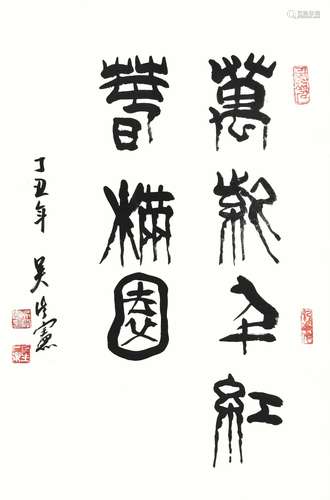 萬紫千紅
春滿園
丁丑年 吴憲